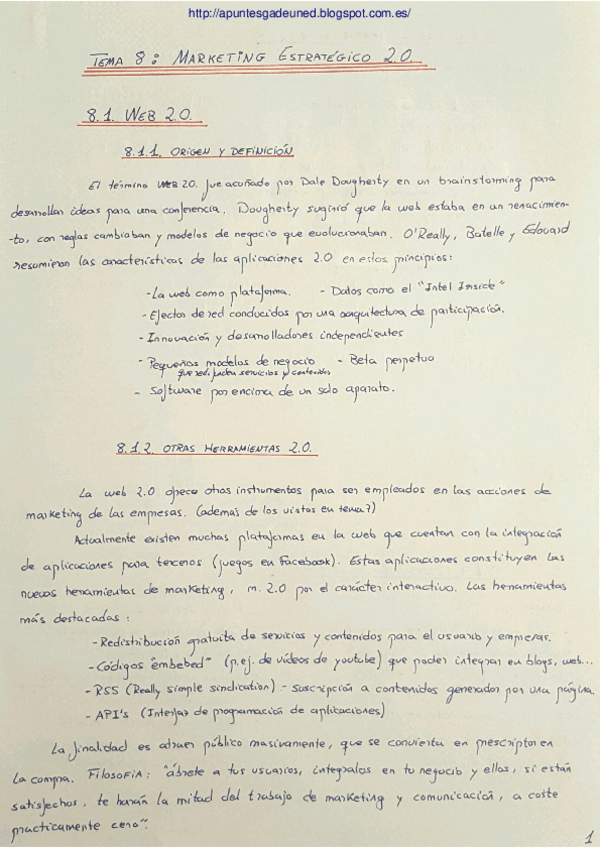 http://apuntesgadeuned.blogspot.com.es/
TEMA 8: MARKETING ESTRATÉGICO 2.0.
8.1. WEB 2.0.
8.1.1. ORIGEN Y DEFINICIÓN
El término WEB 2.0. fue acuñado por Dale Dougherty en un brainstorming para
desarrollar ideas para una conferencia. Dougherty sugirió que la web estaba en un renacimien-
-to, con reglas cambiaban y modelos de negocio que evolucionaban. O'Really, Batelle y Edouard
resumieron las características de las aplicaciones 2.0 en estos principios:
- La web como plataforma. - Datos como el "Intel Inside"
- Efectos de red conducidos por una arquitectura de participación.
- Innovación y desarrolladores independientes
- Pequeños modelos de negocio - Beta perpetuo
que redifunden servicios y contenidos
- Software por encima de un solo aparato.
8.1.2. OTRAS HERRAMIENTAS 2.0.
La web 2.0 ofrece otros instrumentos para ser empleados en las acciones de
marketing de las empresas. (además de los vistos en tema 7)
Actualmente existen muchas plataformas en la web que cuentan con la integración
de aplicaciones para terceros (juegos en Facebook). Estas aplicaciones constituyen las
nuevas herramientas de marketing, m. 2.0 por el carácter interactivo. Las herramientas
más destacadas:
- Redistribución gratuita de servicios y contenidos para el usuario y empresas.
- Códigos "embebed" (p.ej. de vídeos de youtube) que poder integrar en blogs, web...
- RSS (Really simple sindication) - Suscripción a contenidos generados por una página.
- API's (Interfaz de programación de aplicaciones)
La finalidad es atraer público masivamente, que se convierta en prescriptor en
la compra. FILOSOFIA: "ábrete a tus usuarios, intégralos en tu negocio y ellos, si están
satisfechos, te harán la mitad del trabajo de marketing y comunicación, a coste
practicamente cero".
1